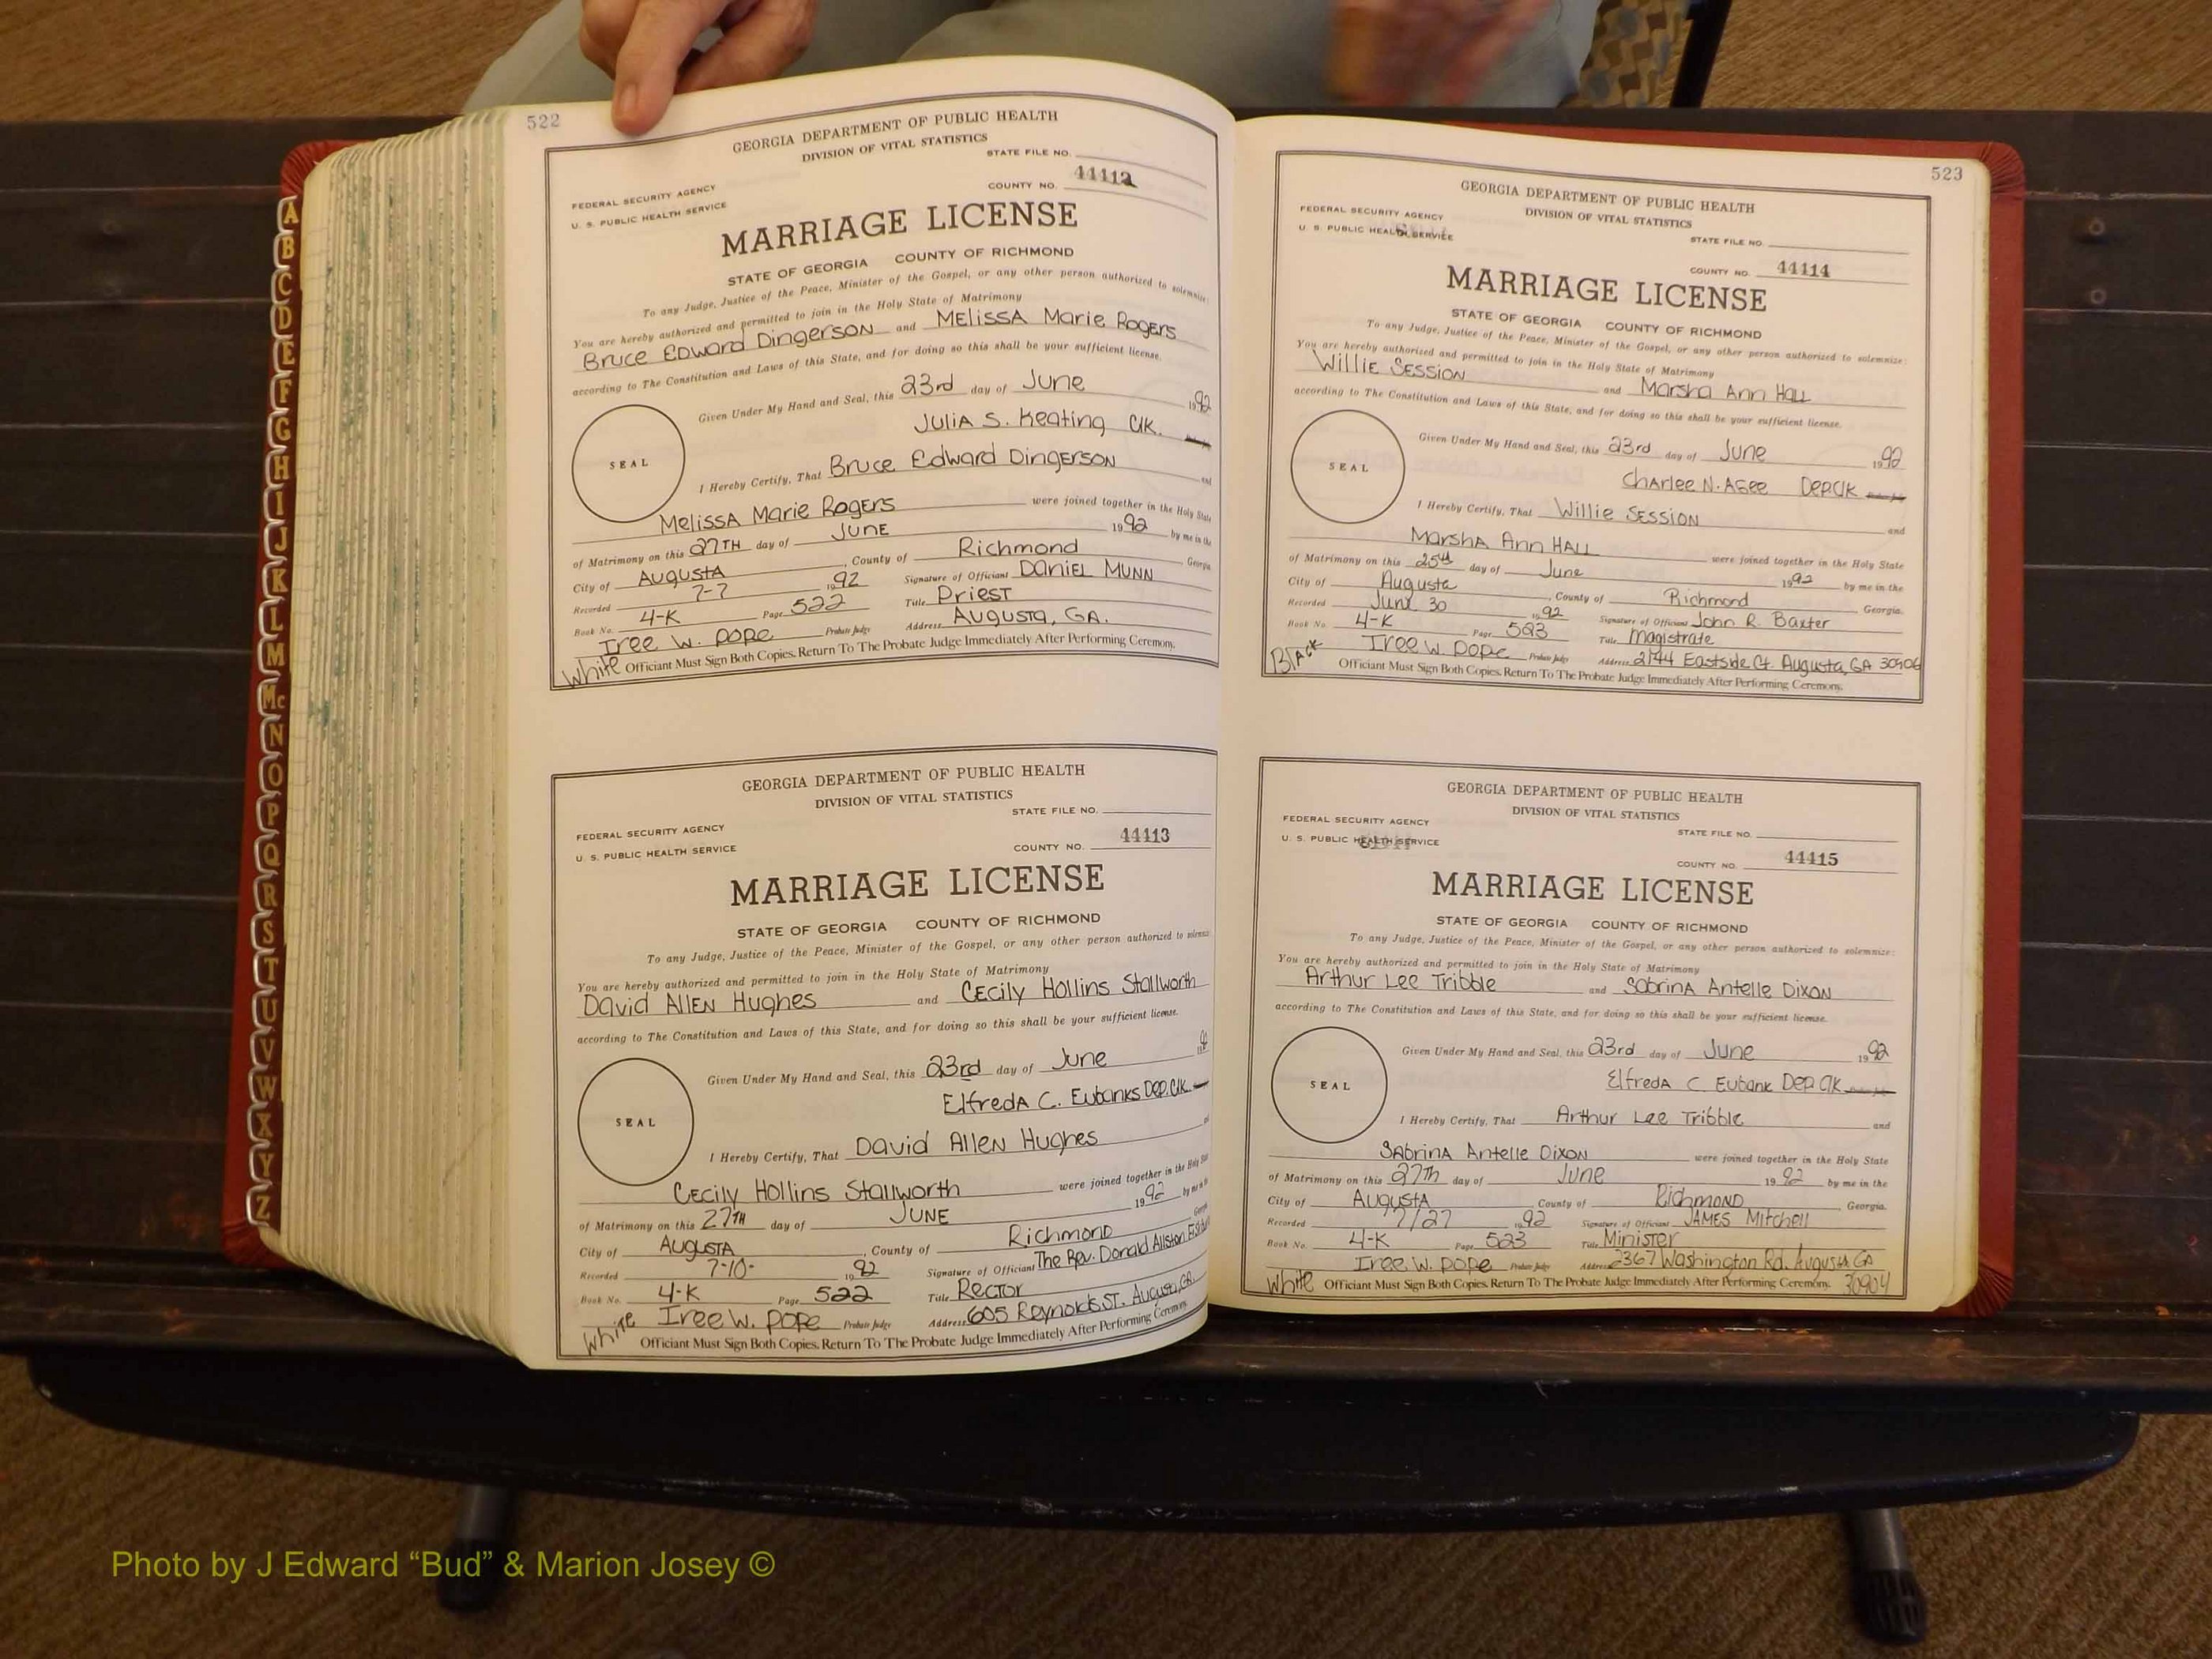 A
B
C
D
E
F
G
H
I
J
K
L
M
Mc
N
O
P
Q
R
S
T
U
V
W
X
Y
Z
522
GEORGIA DEPARTMENT OF PUBLIC HEALTH
DIVISION OF VITAL STATISTICS
STATE FILE NO.
FEDERAL SECURITY AGENCY
U. S. PUBLIC HEALTH SERVICE
COUNTY NO. 44112
MARRIAGE LICENSE
STATE OF GEORGIA COUNTY OF RICHMOND
To any Judge, Justice of the Peace, Minister of the Gospel, or any other person authorized to solemnize:
You are hereby authorized and permitted to join in the Holy State of Matrimony
Bruce Edward Dingerson and Melissa Marie Rogers
according to The Constitution and Laws of this State, and for doing so this shall be your sufficient license.
Given Under My Hand and Seal, this 23rd day of June 1992
Julia S. Keating Clk.
SEAL
I Hereby Certify, That Bruce Edward Dingerson and
Melissa Marie Rogers were joined together in the Holy State
of Matrimony on this 27TH day of JUNE 1992 by me in the
City of Augusta, County of Richmond Georgia
Recorded 7-7 1992 Signature of Officiant Daniel Munn
Book No. 4-K Page 522 Title Priest
Iree W. Pope Probate Judge Address Augusta, GA.
White Officiant Must Sign Both Copies. Return To The Probate Judge Immediately After Performing Ceremony.
GEORGIA DEPARTMENT OF PUBLIC HEALTH
DIVISION OF VITAL STATISTICS
STATE FILE NO.
FEDERAL SECURITY AGENCY
U. S. PUBLIC HEALTH SERVICE
COUNTY NO. 44113
MARRIAGE LICENSE
STATE OF GEORGIA COUNTY OF RICHMOND
To any Judge, Justice of the Peace, Minister of the Gospel, or any other person authorized to
You are hereby authorized and permitted to join in the Holy State of Matrimony
David Allen Hughes and Cecily Hollins Stallworth
according to The Constitution and Laws of this State, and for doing so this shall be your sufficient license.
Given Under My Hand and Seal, this 23rd day of June
Elfreda C. Eubanks Dep. Clk.
SEAL
I Hereby Certify, That David Allen Hughes
Cecily Hollins Stallworth were joined together in the Holy State
of Matrimony on this 27TH day of JUNE 1992 by me in the
City of Augusta, County of Richmond
Recorded 7-10- 1992 Signature of Officiant The Rev. Donald Allston
Book No. 4-K Page 522 Title Rector
Iree W. Pope Probate Judge Address 605 Reynolds ST. Augusta, GA.
White Officiant Must Sign Both Copies. Return To The Probate Judge Immediately After Performing Ceremony.
523
GEORGIA DEPARTMENT OF PUBLIC HEALTH
DIVISION OF VITAL STATISTICS
FEDERAL SECURITY AGENCY
U. S. PUBLIC HEALTH SERVICE
STATE FILE NO.
COUNTY NO. 44114
MARRIAGE LICENSE
STATE OF GEORGIA COUNTY OF RICHMOND
To any Judge, Justice of the Peace, Minister of the Gospel, or any other person authorized to solemnize:
You are hereby authorized and permitted to join in the Holy State of Matrimony
Willie Session and Marsha Ann Hall
according to The Constitution and Laws of this State, and for doing so this shall be your sufficient license.
Given Under My Hand and Seal, this 23rd day of June 1992
Charlee N. Agee Dep Clk
SEAL
I Hereby Certify, That Willie Session and
Marsha Ann Hall were joined together in the Holy State
of Matrimony on this 25th day of June 1992 by me in the
City of Augusta, County of Richmond Georgia.
Recorded June 30 1992 Signature of Officiant John R. Baxter
Book No. 4-K Page 523 Title Magistrate
Iree W. Pope Probate Judge Address 2144 Eastside Ct. Augusta, GA 30906
Black Officiant Must Sign Both Copies. Return To The Probate Judge Immediately After Performing Ceremony.
GEORGIA DEPARTMENT OF PUBLIC HEALTH
DIVISION OF VITAL STATISTICS
FEDERAL SECURITY AGENCY
U. S. PUBLIC HEALTH SERVICE
STATE FILE NO.
COUNTY NO. 44115
MARRIAGE LICENSE
STATE OF GEORGIA COUNTY OF RICHMOND
To any Judge, Justice of the Peace, Minister of the Gospel, or any other person authorized to solemnize:
You are hereby authorized and permitted to join in the Holy State of Matrimony
Arthur Lee Tribble and Sabrina Antelle Dixon
according to The Constitution and Laws of this State, and for doing so this shall be your sufficient license.
Given Under My Hand and Seal, this 23rd day of June 1992
Elfreda C Eubank Dep Clk
SEAL
I Hereby Certify, That Arthur Lee Tribble and
Sabrina Antelle Dixon were joined together in the Holy State
of Matrimony on this 27th day of June 1992 by me in the
City of Augusta County of Richmond, Georgia.
Recorded 7/27 1992 Signature of Officiant James Mitchell
Book No. 4-K Page 523 Title Minister
Iree W. Pope Probate Judge Address 2367 Washington Rd. Augusta GA
White Officiant Must Sign Both Copies. Return To The Probate Judge Immediately After Performing Ceremony. 30904
Photo by J Edward “Bud” & Marion Josey ©